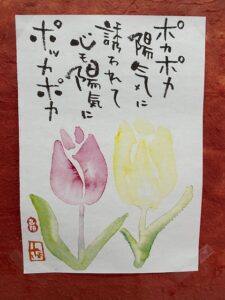 ポカポカ
陽気に
誘われて
心も陽気に
ポッカポカ